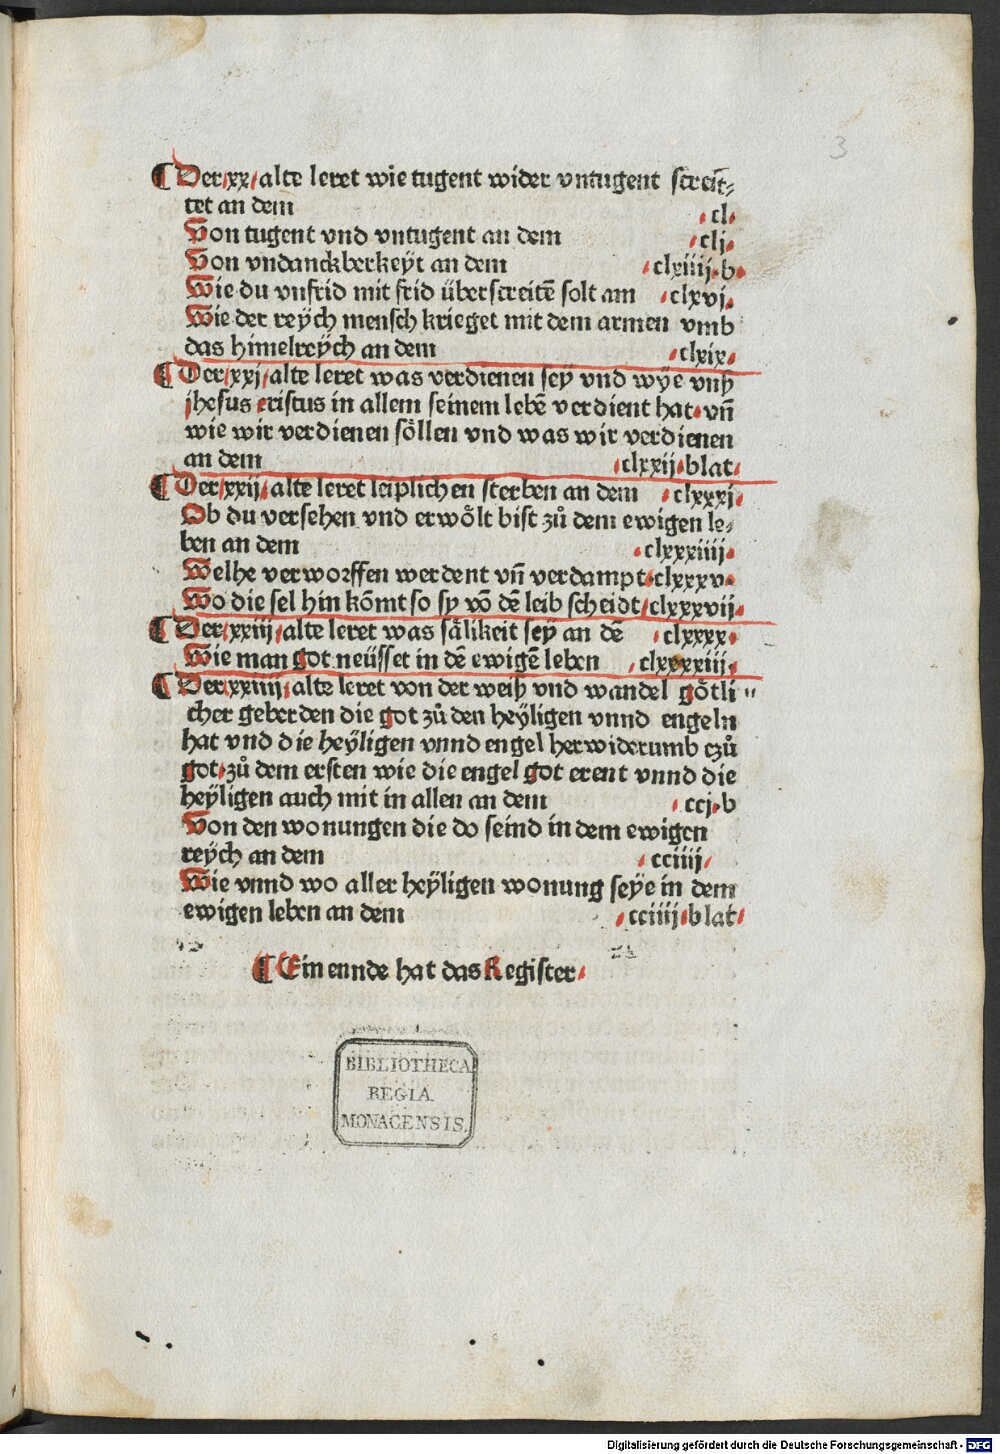 3
¶ Der·xx·alte leret wie tugent wider vntugent streit⸗
tet an dem ·cl·
Von tugent vnd vntugent an dem ·clj·
Von vndanckberkeÿt an dem ·clxiiij·b·
Wie du vnfrid mit frid überstreitē solt am ·clxvj·
Wie der reÿch mensch krieget mit dem armen vmb
das himelreÿch an dem ·clxix·
¶ Der·xxj·alte leret was verdienen seÿ vnd wÿe vnß
jhesus cristus in allem seinem lebē verdient hat·vn̄
wie wir verdienen söllen vnd was wir verdienen
an dem ·clxxij·blat·
¶ Der·xxij·alte leret leiplichen sterben an dem ·clxxxj·
Ob du versehen vnd erwölt bist zů dem ewigen le⸗
ben an dem ·clxxxiiij·
Welhe verworffen werdent vn̄ verdampt·clxxxv·
Wo die sel hin kōmt so sy vō dē leib scheidt·clxxxvij·
¶ Der·xxiij·alte leret was sälikeit seÿ an dē ·clxxxx·
Wie man got neüsset in dē ewigē leben ·clxxxxiij·
¶ Der·xxiiij·alte leret von der weiß vnd wandel götli⸗
cher geberden die got zů den heÿligen vnnd engeln
hat vnd die heÿligen vnnd engel herwiderumb czů
got·zů dem ersten wie die engel got erent vnnd die
heÿligen auch mit in allen an dem ·ccj·b
Von den wonungen die do seind in dem ewigen
reÿch an dem ·cciiij·
Wie vnnd wo aller heÿligen wonung seÿe in dem
ewigen leben an dem ·cciiij·blat·
¶ Ein ennde hat das Register·
BIBLIOTHECA
REGIA
MONACENSIS.
Digitalisierung gefördert durch die Deutsche Forschungsgemeinschaft - DFG